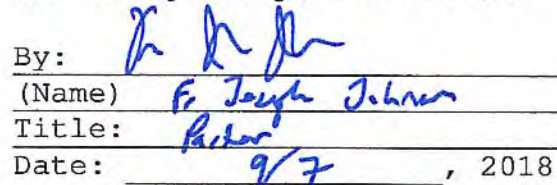 By:
(Name) F. Joseph Johnson
Title:
Date: 9/7, 2018